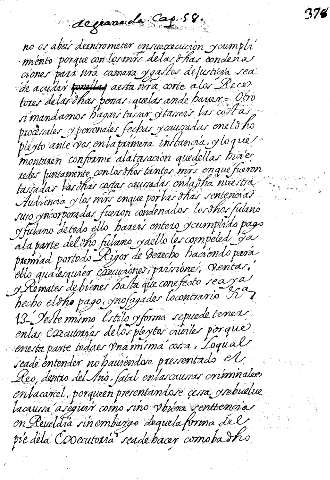 de granada Cap. 58. 376
no es abis de entrometer en su execucion y cumpli
miento porque con los mrs de las dhas condena
ciones para nra camara y gastos de Justicia sea
de acudir a esta nra corte a los Recep
tores de las dhas penas, que las ande haver = Otro
si mandamos hagais tasar y taseis las costas
procesales y personales fechas y causadas en el dho
pleyto ante vos en la primera instancia, y lo que
montaren conforme a la tasacion que dellas hicie
redes Juntamente con los dhos tantos mrs en que fueron
tasadas las dhas costas causadas en la dha nuestra
Audiencia y los mrs en que por las dhas sentencias
suso yncorporadas fueron condenados los dhos fulano
y fulano de todo ello hacer entero y cumplido pago
a la parte del dho fulano y a ello les compeled y a
premiad por todo Rigor de Derecho haciendo para
ello qualesquier execuciones, prisiones, Ventas,
y Remates de bienes hasta que con efecto sea ya
hecho el dho pago, y no fagades lo contrario
13 - Y este mismo Estilo y forma se puede tener
en las Executorias de los pleytos civiles porque
en esta parte todo es una misma cosa. Lo qual
sea de entender no haviendose presentado el
Reo, dentro del Año fatal en las causas criminales
en la carcel, porque en presentandose cesa, y se buelve
la causa a seguir como si no ubiera senttencia
en Reveldia sin embargo de que la forma del
pie de la Executoria sea de hacer como ba dho